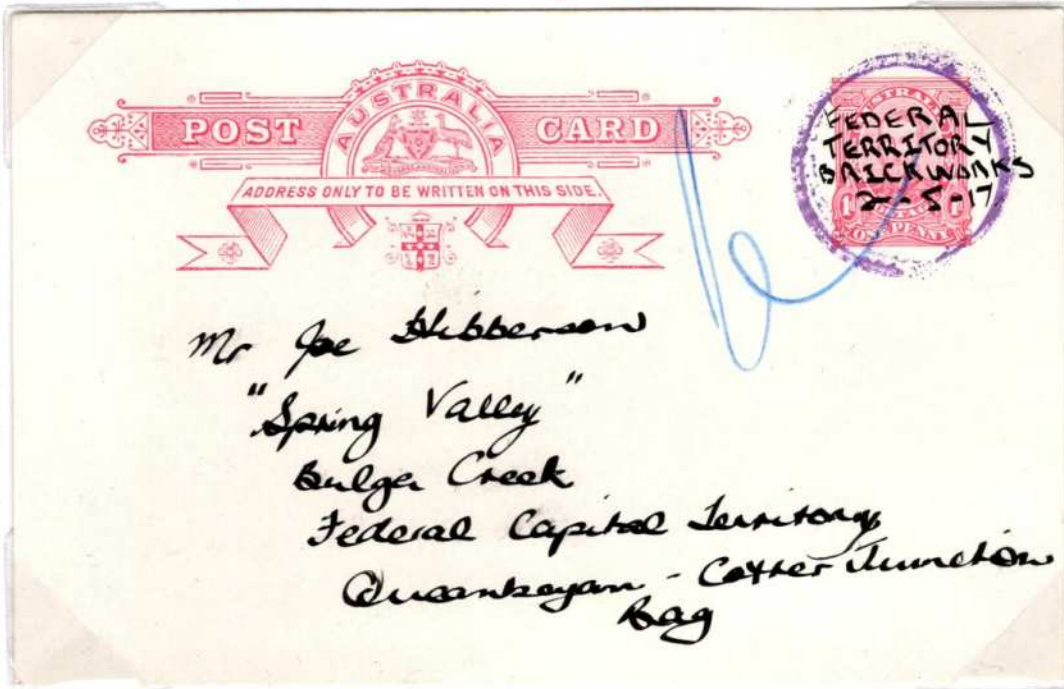 POST AUSTRALIA CARD
ADDRESS ONLY TO BE WRITTEN ON THIS SIDE.
AUSTRALIA
FEDERAL
TERRITORY
BRICKWORKS
2-5-17
1d POSTAGE 1d
ONE PENNY
Mr Joe Hibberson
"Spring Valley"
Bulga Creek
Federal Capital Territory
Queanbeyan - Cotter Junction
Bag